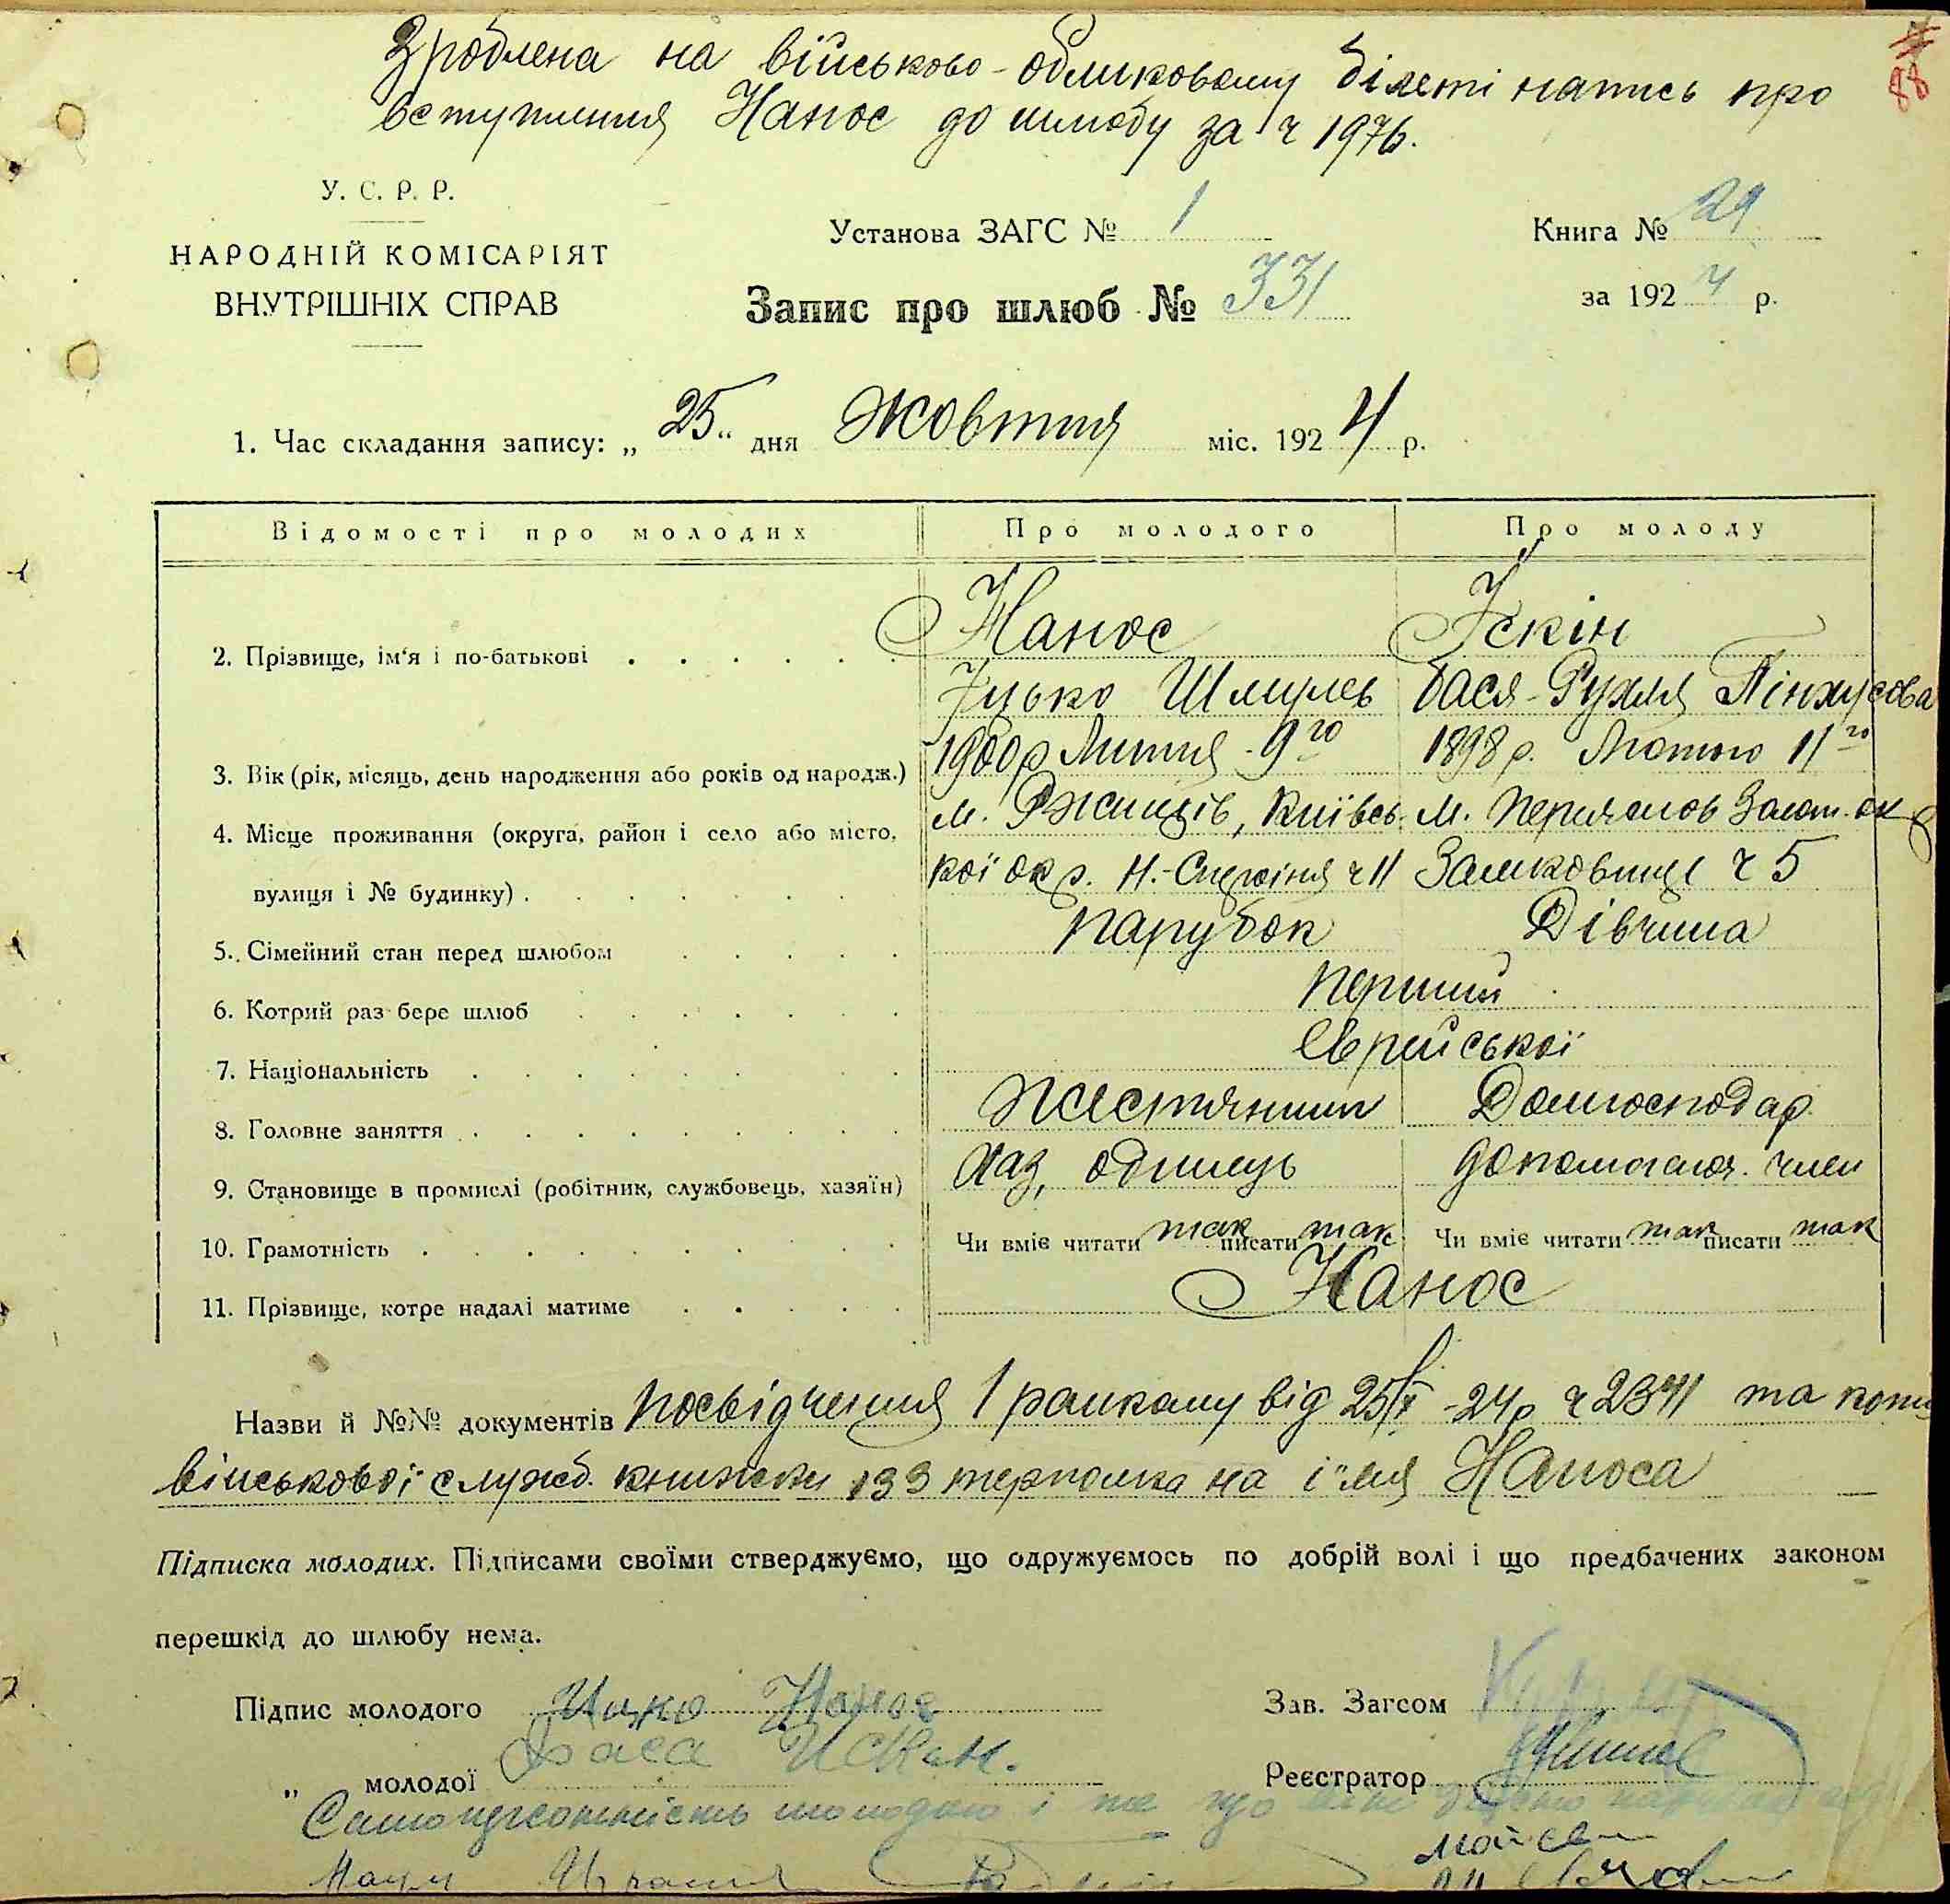 Зроблена на військово-обліковому білеті напись про
вступлення Нанос до шлюбу за ч 1976.
88
У. С. Р. Р.
НАРОДНІЙ КОМІСАРІЯТ
ВНУТРІШНІХ СПРАВ
Установа ЗАГС № 1
Книга № 29
Запис про шлюб № 331
за 1924 р.
1. Час складання запису: „25“ дня Жовтня міс. 1924 р.
Відомості про молодих Про молодого Про молоду
2. Прізвище, ім'я і по-батькові Нанос Іскін
Іцько Шмулев Бася-Рухля Пінхусова
3. Вік (рік, місяць, день народження або років од народж.) 1900р Липня 9го 1898 р. Лютого 11го
4. Місце проживання (округа, район і село або місто, м. Ржищів, Київсь м. Переяслов Золот. ок
вулиця і № будинку) кої окр. ч 11 Замковище ч 5
5. Сімейний стан перед шлюбом парубок Дівчина
6. Котрий раз бере шлюб перший
7. Національність Єврейської
8. Головне заняття Жестянник Домгосподар
9. Становище в промислі (робітник, службовець, хазяїн) Хаз, одинець допомогаюч. член
10. Грамотність Чи вміє читати так писати так Чи вміє читати так писати так
11. Прізвище, котре надалі матиме Нанос
Назви й №№ документів Посвідчення 1 райкому від 25/X -24р ч 2341 та копія
військової служб. книжки 133 терполка на ім'я Наноса
Підписка молодих. Підписами своїми стверджуємо, що одружуємось по добрій волі і що предбачених законом
перешкід до шлюбу нема.
Підпис молодого Ицко Нанос Зав. Загсом
„ молодої Баса Искин. Реєстратор
Самотужсотність молодого і те що